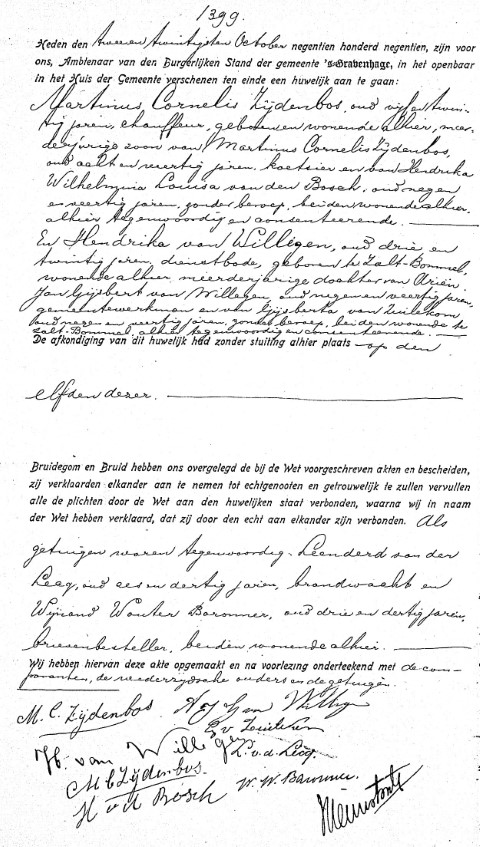 1399.
Heden den twee en twintigsten October negentien honderd negentien, zijn voor
ons, Ambtenaar van den Burgerlijken Stand der gemeente 's-Gravenhage, in het openbaar
in het Huis der Gemeente verschenen ten einde een huwelijk aan te gaan:
Martinus Cornelis Zijdenbos, oud vijf en twin-
tig jaren, chauffeur, geboren en wonende alhier, meer-
derjarige zoon van Martinus Cornelis Zijdenbos,
oud acht en veertig jaren, koetsier en van Hendrika
Wilhelmina Louisa van den Bosch, oud negen
en veertig jaren, zonder beroep, beiden wonende alhier,
alhier tegenwoordig en consenteerende.
En Hendrika van Willigen, oud drie en
twintig jaren, dienstbode, geboren te Zalt-Bommel,
wonende alhier, meerderjarige dochter van Ariën
Jan Gijsbert van Willegen, oud negen en veertig jaren,
gemeentewerkman en van Gijsberta van Zuilekom,
oud negen en veertig jaren, zonder beroep, beiden wonende te
Zalt-Bommel, alhier tegenwoordig en consenteerende.
De afkondiging van dit huwelijk had zonder stuiting alhier plaats op den
elfden dezer.
Bruidegom en Bruid hebben ons overgelegd de bij de Wet voorgeschreven akten en bescheiden,
zij verklaarden elkander aan te nemen tot echtgenooten en getrouwelijk te zullen vervullen
alle de plichten door de Wet aan den huwelijken staat verbonden, waarna wij in naam
der Wet hebben verklaard, dat zij door den echt aan elkander zijn verbonden. Als
getuigen waren tegenwoordig: Leenderd van der
Leeg, oud een en dertig jaren, brandwacht en
Wijnand Wouter Baronner, oud drie en dertig jaren,
brievenbesteller, beiden wonende alhier.
Wij hebben hiervan deze akte opgemaakt en na voorlezing onderteekend met de com-
paranten, de wederzijdsche ouders en de getuigen.
M. C. Zijdenbos
H. van Willigen
L. v. d. Leeg
M C Zijdenbos
H v d Bosch
W. W. Baronner